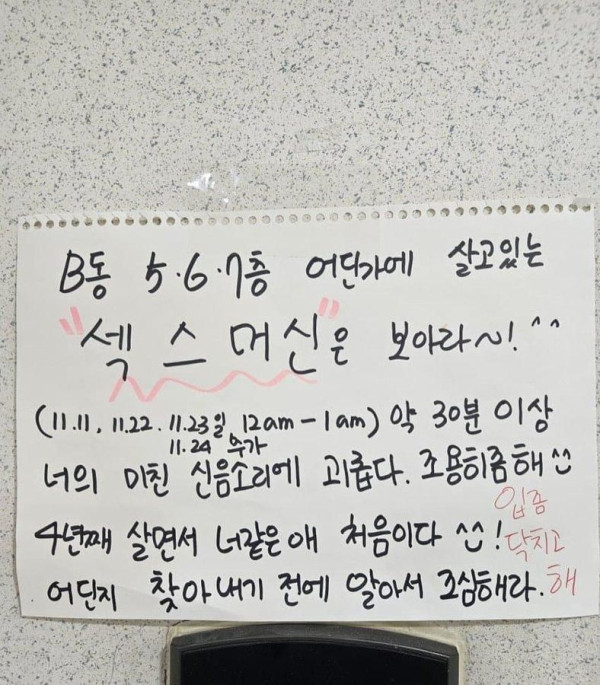 B동 5·6·7층 어딘가에 살고있는
"섹스머신"은 보아라~! ^^
(11.11, 11.22. 11.23일 12am-1am) 약 30분 이상
11.24 추가
너의 미친 신음소리에 괴롭다. 조용히좀해
4년째 살면서 너같은애 처음이다 !
어딘지 찾아내기 전에 알아서 조심해라.
입좀
닥치고
해